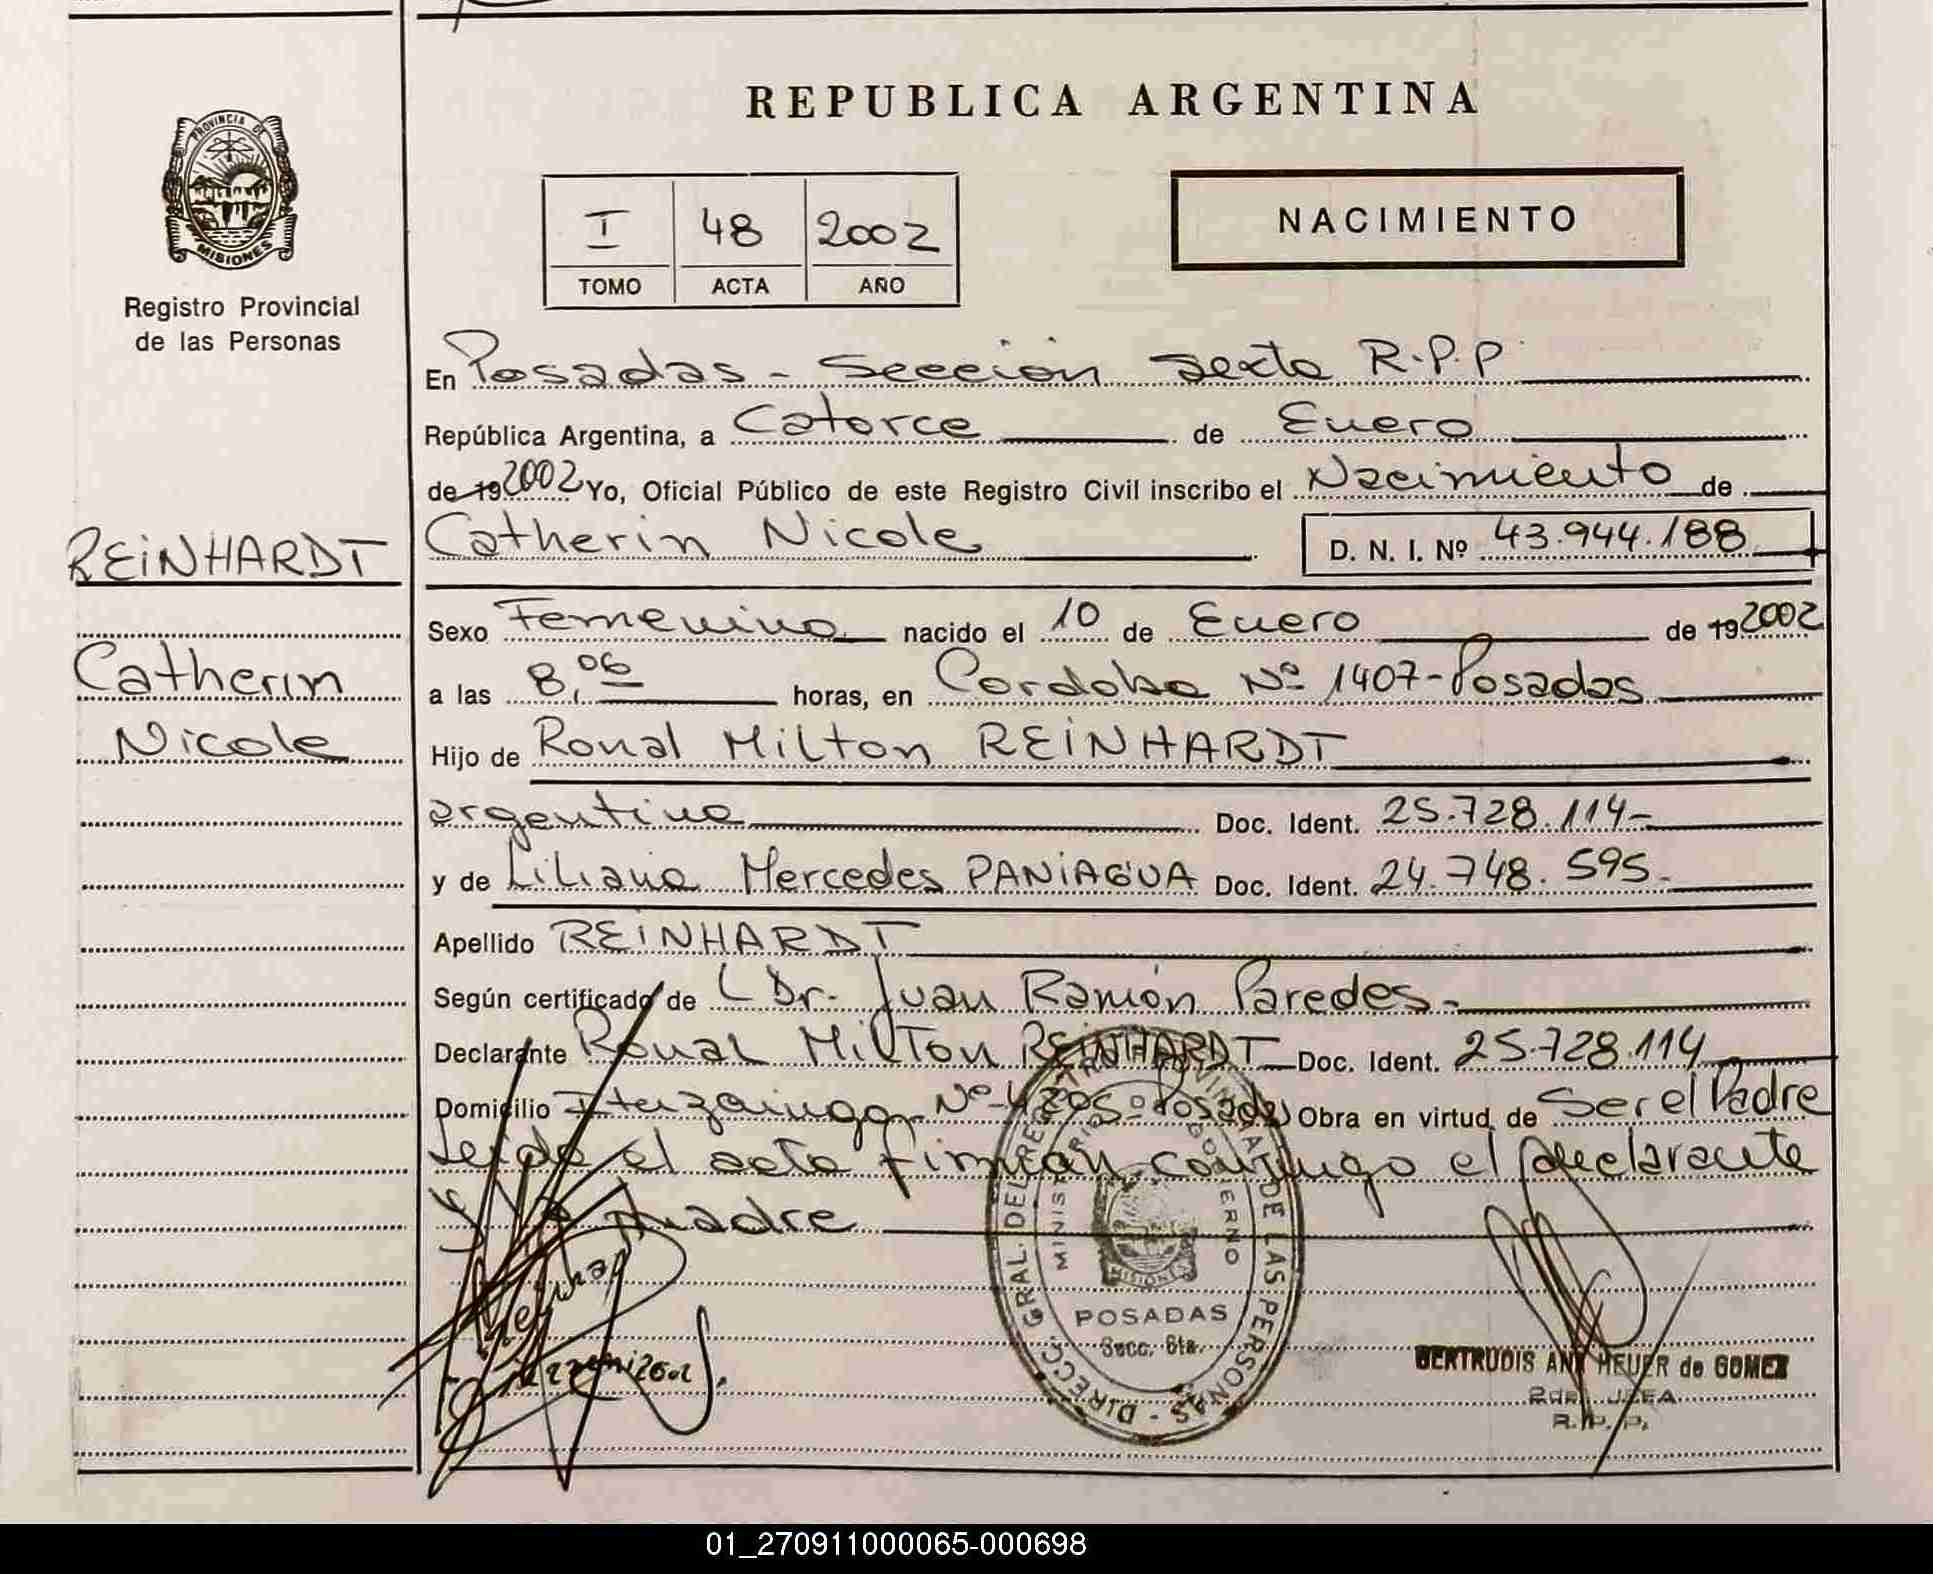 REPUBLICA ARGENTINA
PROVINCIA DE
MISIONES
Registro Provincial
de las Personas
I 48 2002
TOMO ACTA AÑO
NACIMIENTO
En Posadas - Sección Sexta R.P.P
República Argentina, a Catorce de Enero
de 19 2002 Yo, Oficial Público de este Registro Civil inscribo el Nacimiento de
REINHARDT
Catherin Nicole D. N. I. Nº 43.944.188
Sexo Femenino nacido el 10 de Enero de 19 2002
Catherin
a las 8,06 horas, en Cordoba Nº 1407-Posadas
Nicole
Hijo de Ronal Milton REINHARDT
argentino Doc. Ident. 25.728.114-
y de Liliana Mercedes PANIAGUA Doc. Ident. 24.748.595-
Apellido REINHARDT
Según certificado de Dr. Juan Ramón Paredes-
Declarante Ronal Milton REINHARDT Doc. Ident. 25.728.114
Domicilio Ituzaingo Nº Posadas Obra en virtud de Ser el Padre
Leida el acta firman conmigo el declarante
y la Madre
DIRECC. GRAL. DEL REGISTRO PROVINCIAL DE LAS PERSONAS -
MINISTERIO DE GOBIERNO
MISIONES
POSADAS
Secc. 6ta.
GERTRUDIS ANA HEUER de GOMEZ
2da. JEFA
R. P. P.
01_270911000065-000698